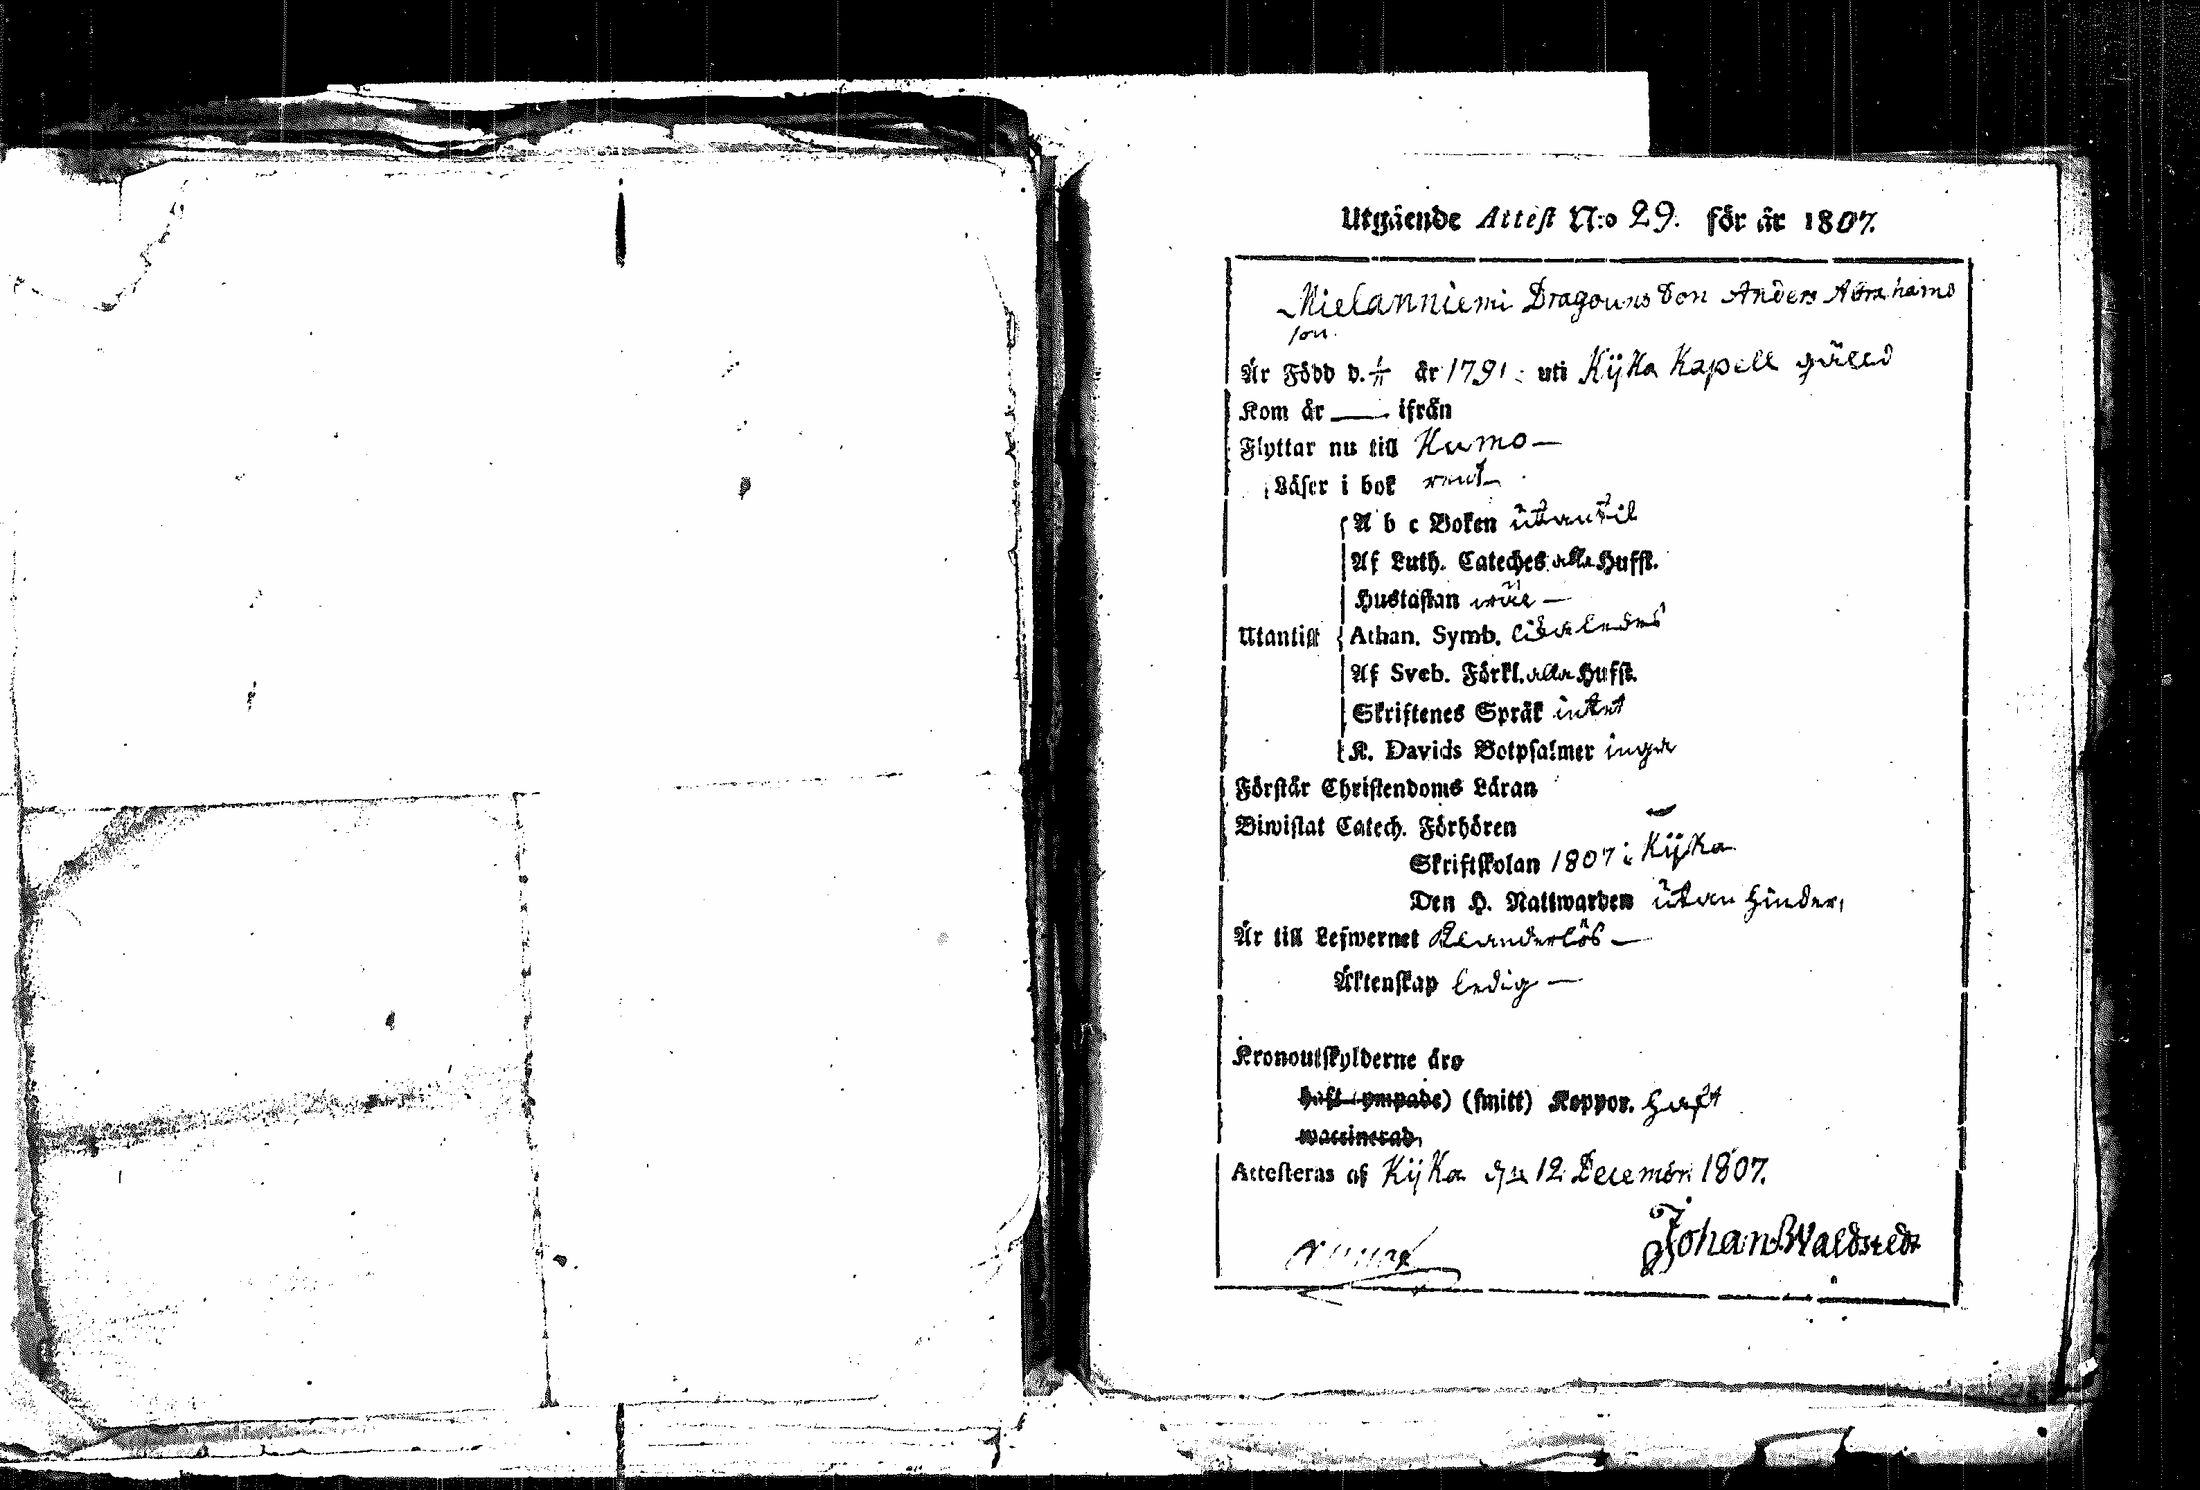 Utgående Attest N:o 29. för år 1807.
Mielanniemi Dragouns Son Anders Abrahams
son.
Är Född d. 1/11 år 1791. uti Kijka Kapell gäld
Kom år — ifrån
Flyttar nu till Kumo —
Läser i bok rent —
A b c Boken utantil
Af Luth. Cateches. alla Hufst.
Hustaflan wäl —
Utantill Athan. Symb. likaledes
Af Sveb. Förkl. alla Hufst.
Skriftenes Språk intet
K. Davids Botpsalmer inga
Förstår Christendoms Läran
Biwistat Catech. Förhören —
Skriftskolan 1807 i Kijka
Den H. Nattwarden utan hinder,
Är till Lefwernet Klanderlös —
Äktenskap ledig —
Kronoutskylderne äro
haft (ympade) (smitt) Koppor. haft
waccinerad.
Attesteras af Kijka d. 12 Decembr: 1807.
Johan Waldstedt